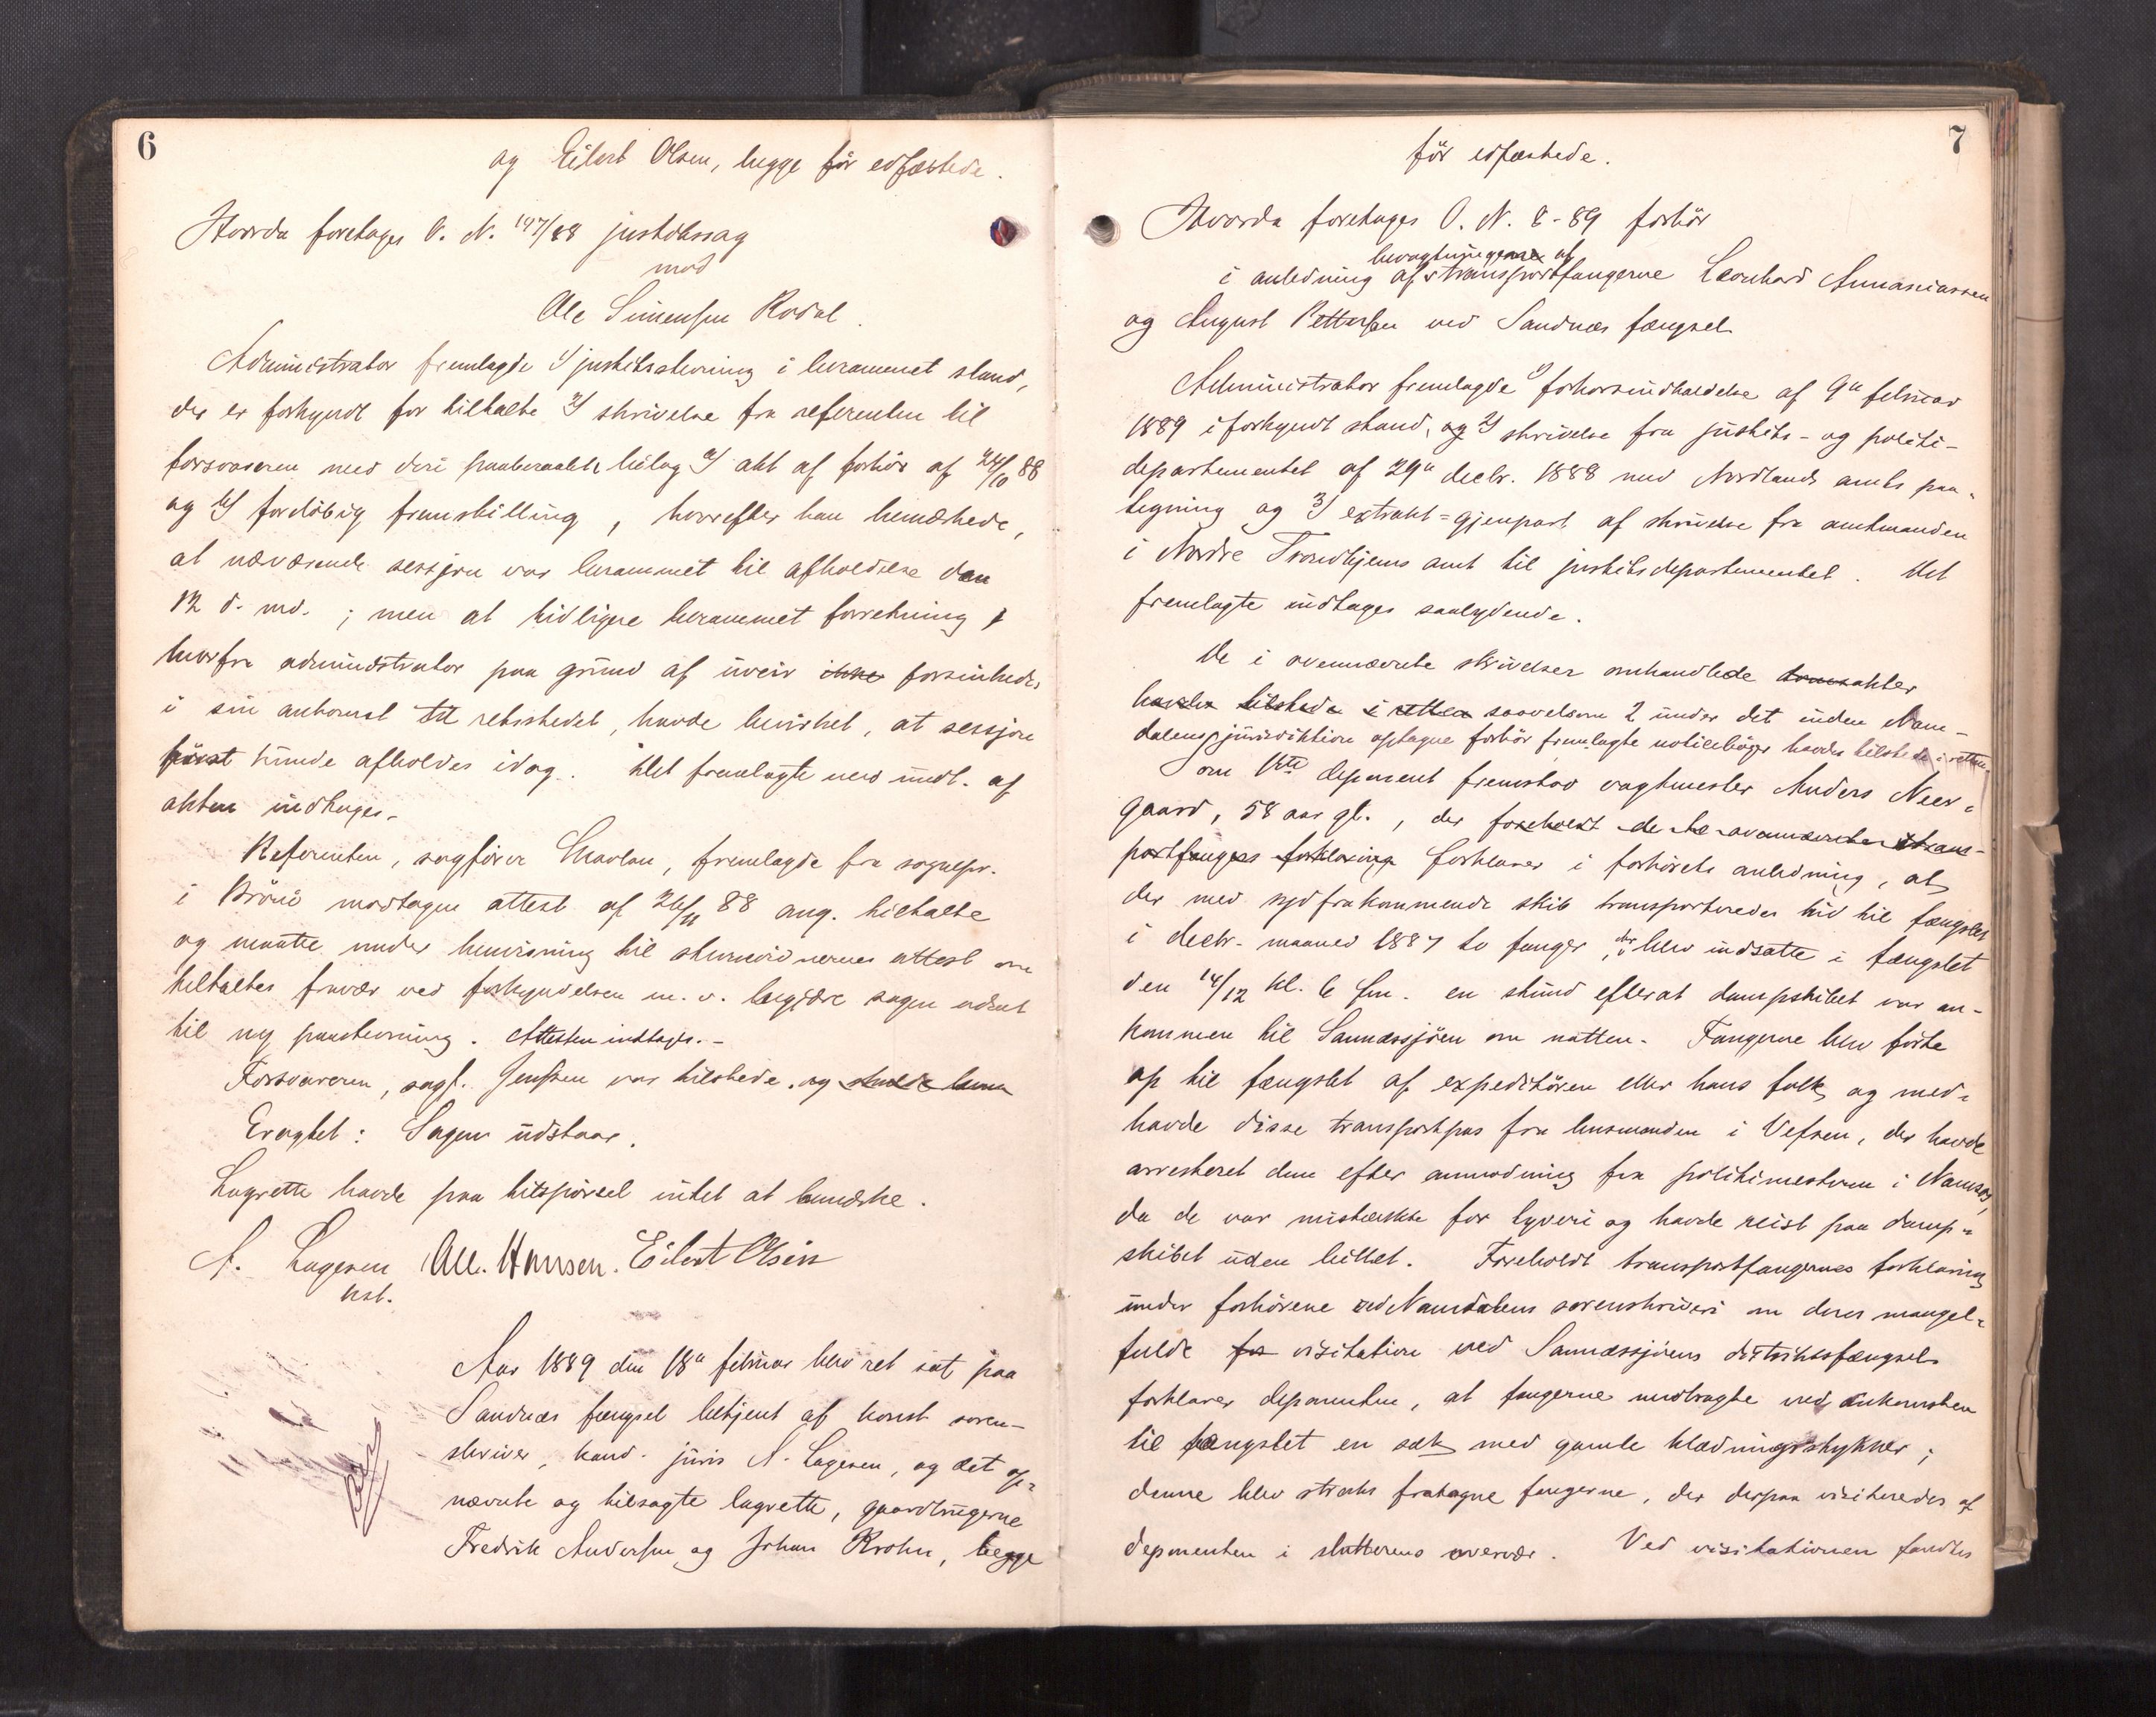 6
og Eilert Olsen, begge før edfæstede.
Hvorda foretages O. N. 197/88 justitssag
mod
Ole Simensen Rodal.
Administrator fremlagde 1) justitsstevning i berammet stand,
der er forkyndt for tiltalte 2) skrivelse fra referenten til
forsvareren med deri paaberaabte bilag 3) akt af forhör af 24/10 88
og 4) forelöbig fremstilling, hvorefter han bemærkede,
at nærværende session var berammet til afholdelse den
12 d. md.; men at tidligere berammet forretning,
hvorfra administrator paa grund af uveir ikke forsinkedes
i sin ankomst til retsstedet, havde bevirket, at sessjon
först kunde afholdes idag. Det fremlagte med undt. af
akten indtages.
Referenten, sagförer, fremlagde fra sognepr.
i Brönö modtagen attest af 26/11 88 ang. tiltalte
og maatte under henvisning til stevnevidnernes attest om
tiltaltes fravær ved forkyndelsen m. v. begjære sagen udsat
til ny paastevning. Attesten indtages. -
Forsvareren, sagf. Jenssen var tilstede. og
Eragtet: Sagen udstaar.
Lagrette havde paa tilspörsel intet at bemærke.
A. Lagesen Ole. Hansen. Eilert Olsen
kst.
Aar 1889 den 18de februar blev ret sat paa
Sandnæs fængsel betjent af konst. soren-
skriver, kand. juris A. Lagesen, og det op-
nævnte og tilsagte lagrette, gaardbrugerne
Fredrik Andersen og Johan Krohn, begge
7
för edfæstede.
Hvorda foretages O. N. 8-89 forhör
bevogtningerne af
i anledning af transportfangerne Leonhard Annaniassen
og August Pettersen ved Sandnæs fængsel
Administrator fremlagde 1) forhorsindkaldelse af 9de februar
1889 i forkyndt stand, og 2) skrivelse fra justits- og politi-
departementet af 29de decbr. 1888 med Nordlands amts paa-
tegning og 3) extrakt-gjenpart af skrivelse fra amtmanden
i Nordre Trondhjems amt til justitsdepartementet. Det
fremlagte indtages saalydende.
De i ovennævnte skrivelser omhandlede akter
havdes tilstede i retten saavelsom 2 under det inden Nam-
dalens jurisdiktion optagne forhör fremlagte notitsböger havdes tilstede i retten.
Som 1ste deponent fremstod vagtmester Anders Neer-
gaard, 58 aar gl., der foreholdt de ovennævnte trans-
portfangers forklaring forklarer i forhörets anledning, at
der med sydfrakommende skib transporteredes hid til fængslet
i decbr. maaned 1887 to fanger, der blev indsatte i fængslet
den 14/12 kl. 6 fm. en stund efterat dampskibet var an-
kommen til Sannæssjöen om natten. Fangerne blev förte
op til fængslet af expeditören eller hans folk og med-
havde disse transportpas fra lensmanden i Vefsen, der havde
arresteret dem efter anmodning fra politimesteren i Namsos,
da de var mistænkte for tyveri og havde reist paa damp-
skibet uden billet. Foreholdt transportfangernes forklaring
under forhörene ved Namdalens sorenskriveri om deres mangel-
fulde for visitation ved Sannæssjöens distriktsfængsel
forklarer deponenten, at fangerne medbragte ved ankomsten
til fængslet en sæk med gamle klædningsstykker;
denne blev straks fratagne fangerne, der derpaa visiteredes af
deponenten i slutterens overvær. Ved visitationen fandtes